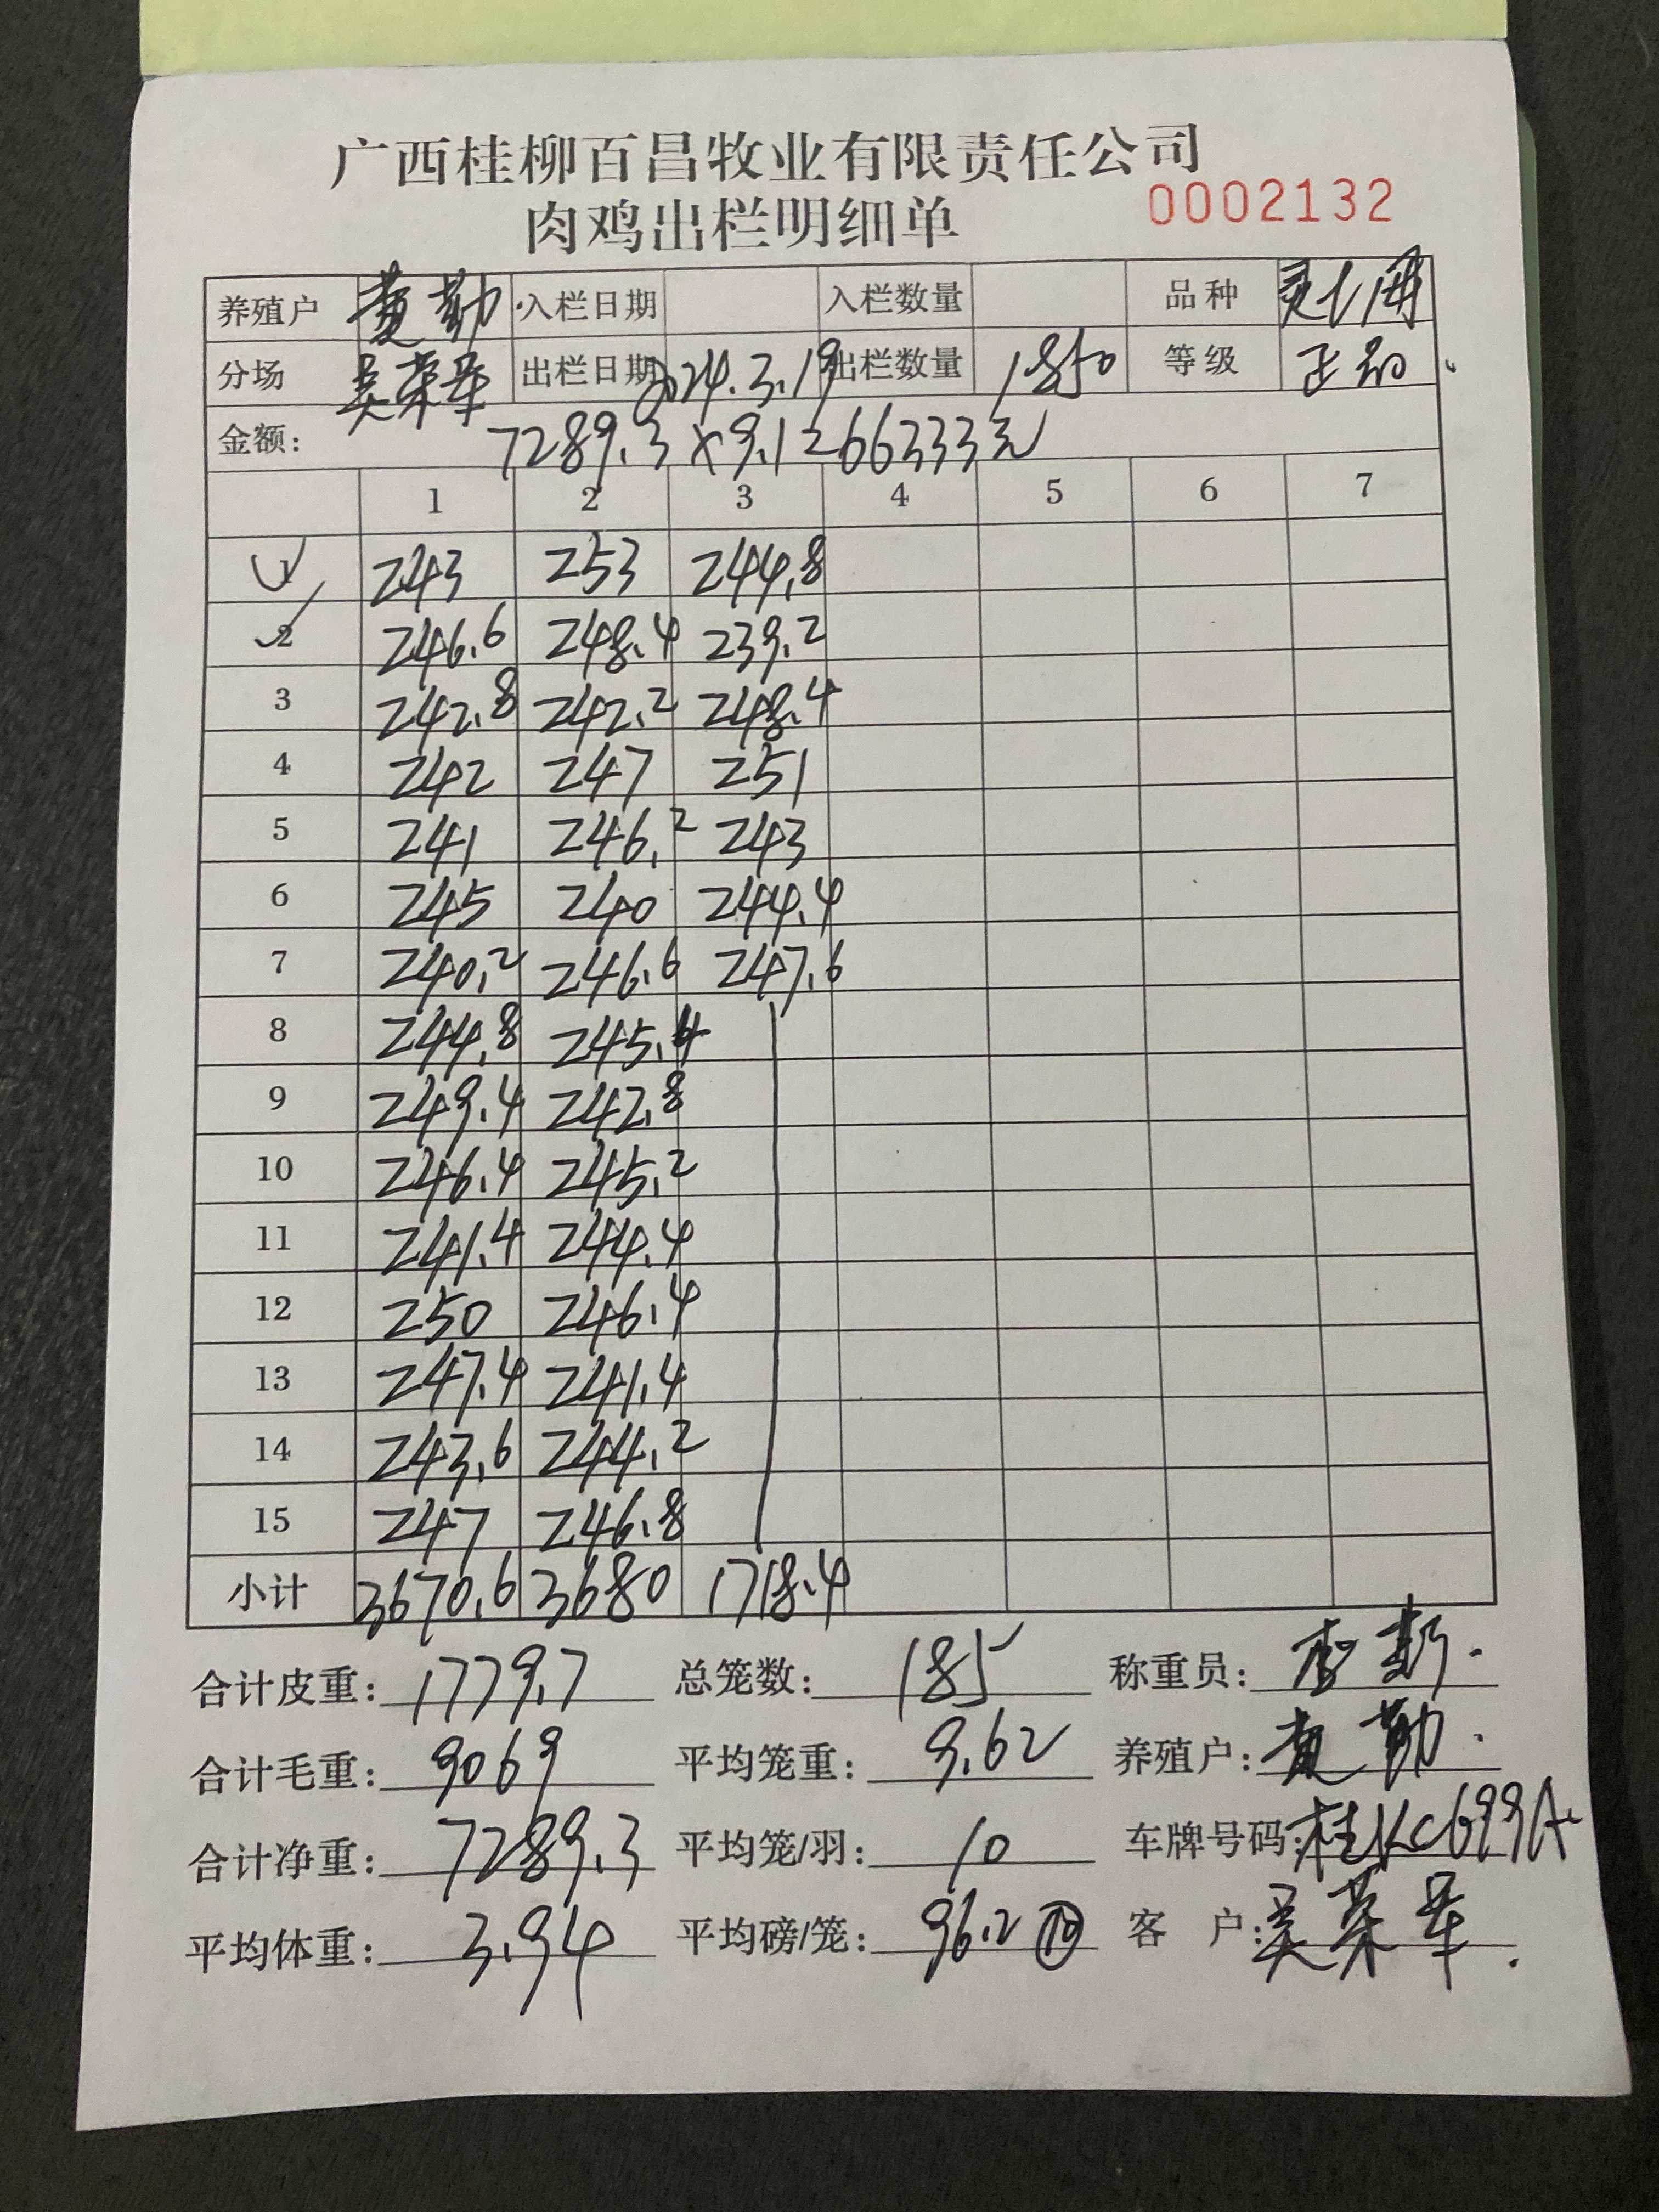 广西桂柳百昌牧业有限责任公司
肉鸡出栏明细单 0002132
养殖户 黄勤 入栏日期 入栏数量 品种
分场 吴荣军 出栏日期 2024.3.19 出栏数量 1850 等级 正
金额: 7289.3×9.1=66333元
1 2 3 4 5 6 7
1 243 253 244.8
2 246.6 248.4 239.2
3 242.8 242.2 248.4
4 242 247 251
5 241 246.2 243
6 245 240 244.4
7 240.2 246.6 247.6
8 244.8 245.4
9 249.4 242.8
10 246.4 245.2
11 241.4 244.4
12 250 246.4
13 247.4 241.4
14 243.6 244.2
15 247 246.8
小计 3670.6 3680 1718.4
合计皮重: 1779.7 总笼数: 185 称重员:
合计毛重: 9069 平均笼重: 9.62 养殖户: 黄勤
合计净重: 7289.3 平均笼/羽: 10 车牌号码: 桂KC699A
平均体重: 3.94 平均磅/笼: 96.2 ⑩ 客户: 吴荣军